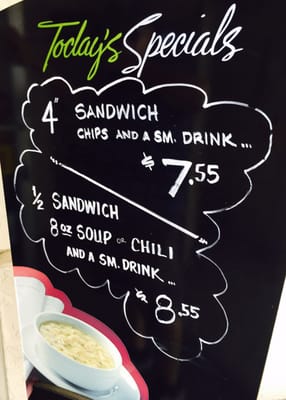 Today's Specials
4" SANDWICH
CHIPS AND A SM. DRINK...
$7.55
½ SANDWICH
8 oz SOUP or CHILI
AND A SM. DRINK...
8.55